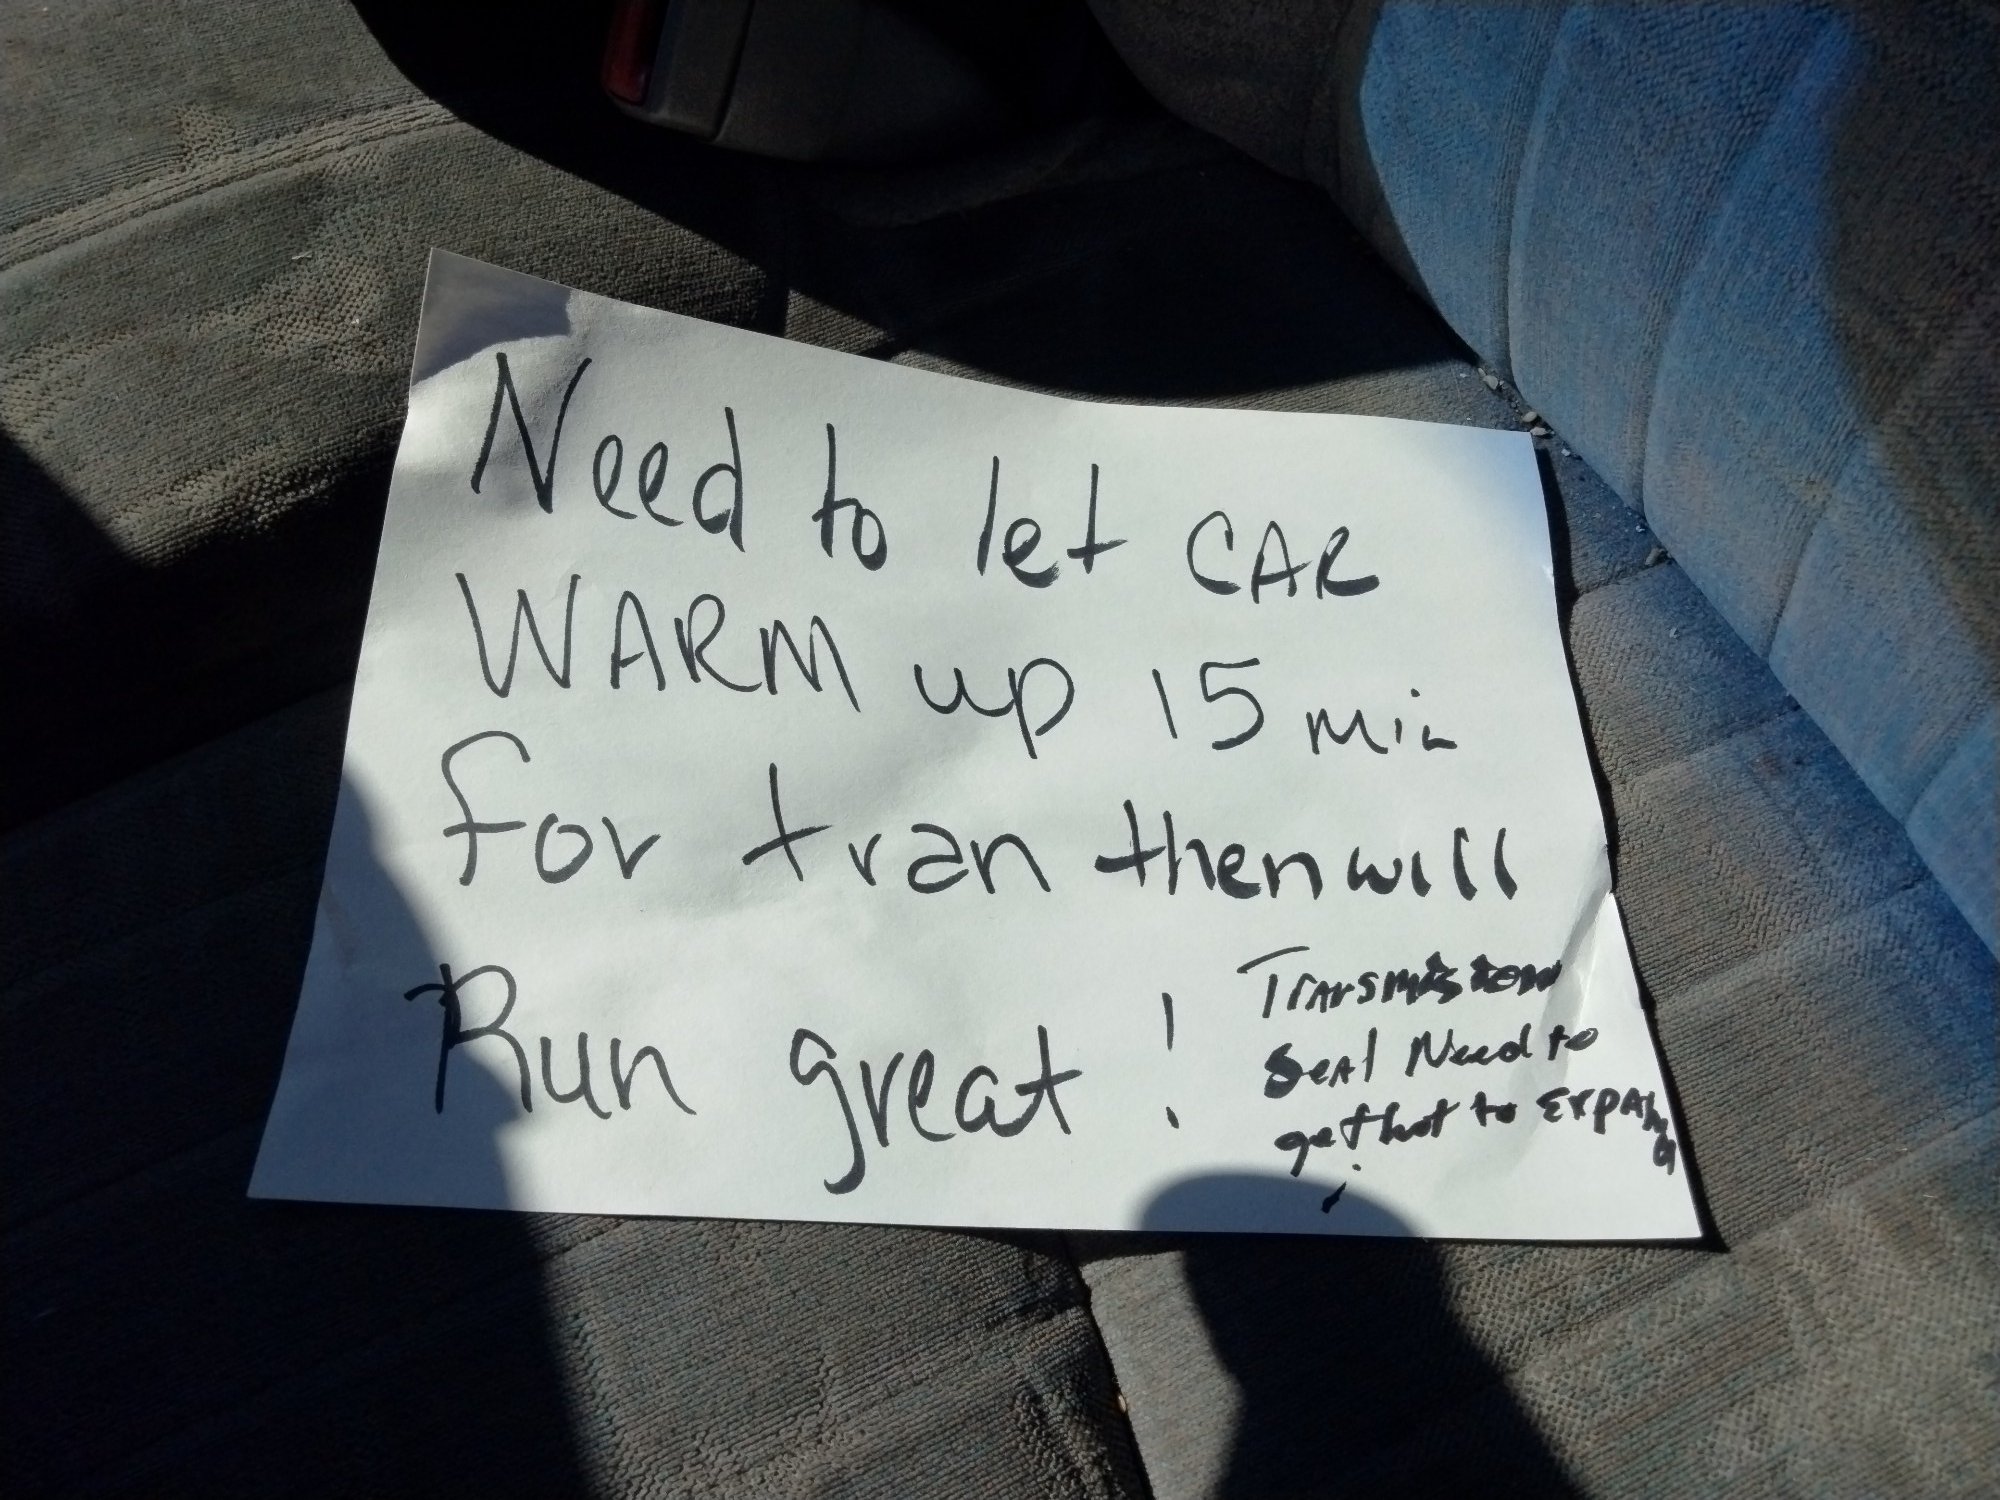 Need to let CAR
WARM up 15 min
for tran then will
Run great !
Transmission
Seal Need to
get hot to Expand
!